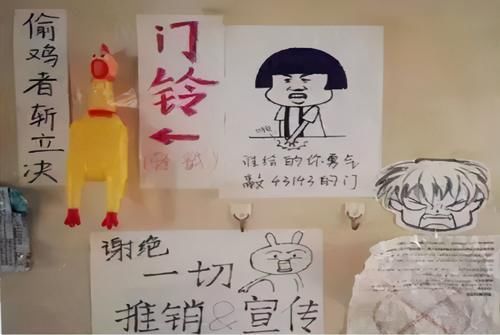 偷鸡者斩立决
门铃
谁给的你勇气
敲43143的门
谢绝
一切
推销&宣传